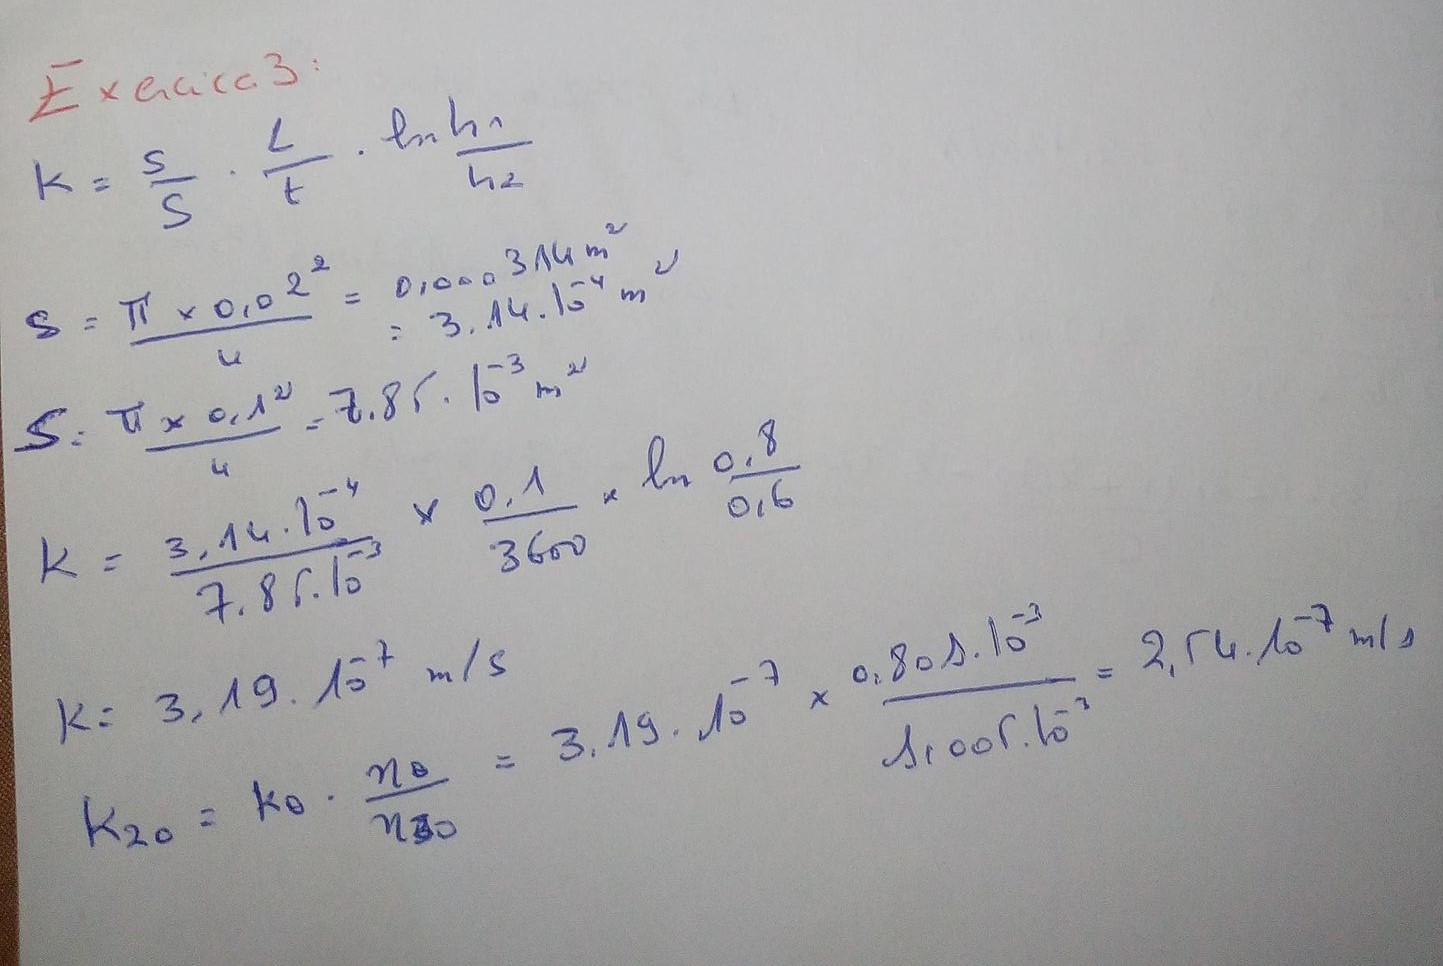 Exercice 3:
K = s/S · L/t · ln h1/h2
s = π × 0,02²/4 = 0,000314 m²
= 3,14.10⁻⁴ m²
S = π × 0,1²/4 = 7,85.10⁻³ m²
K = 3,14.10⁻⁴/7,85.10⁻³ × 0,1/3600 × ln 0,8/0,6
K = 3,19.10⁻⁷ m/s
K20 = Kθ · ηθ/η20 = 3,19.10⁻⁷ × 0,801.10⁻³/1,005.10⁻³ = 2,54.10⁻⁷ m/s